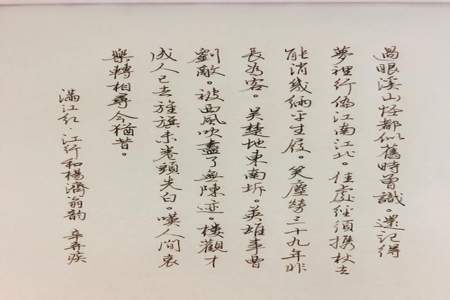 過眼溪山怪都似舊時曾識。還記得
夢裡行遍江南江北。佳處徑須携杖去
能消幾緉平生屐。笑塵勞三十九年非
長為客。吳楚地東南坼。英雄事曹
劉敵。被西風吹盡了無陳迹。樓觀才
成人已去旌旗未卷頭先白。嘆人間哀
樂轉相尋今猶昔。
滿江紅·江行和楊濟翁韵 辛弃疾